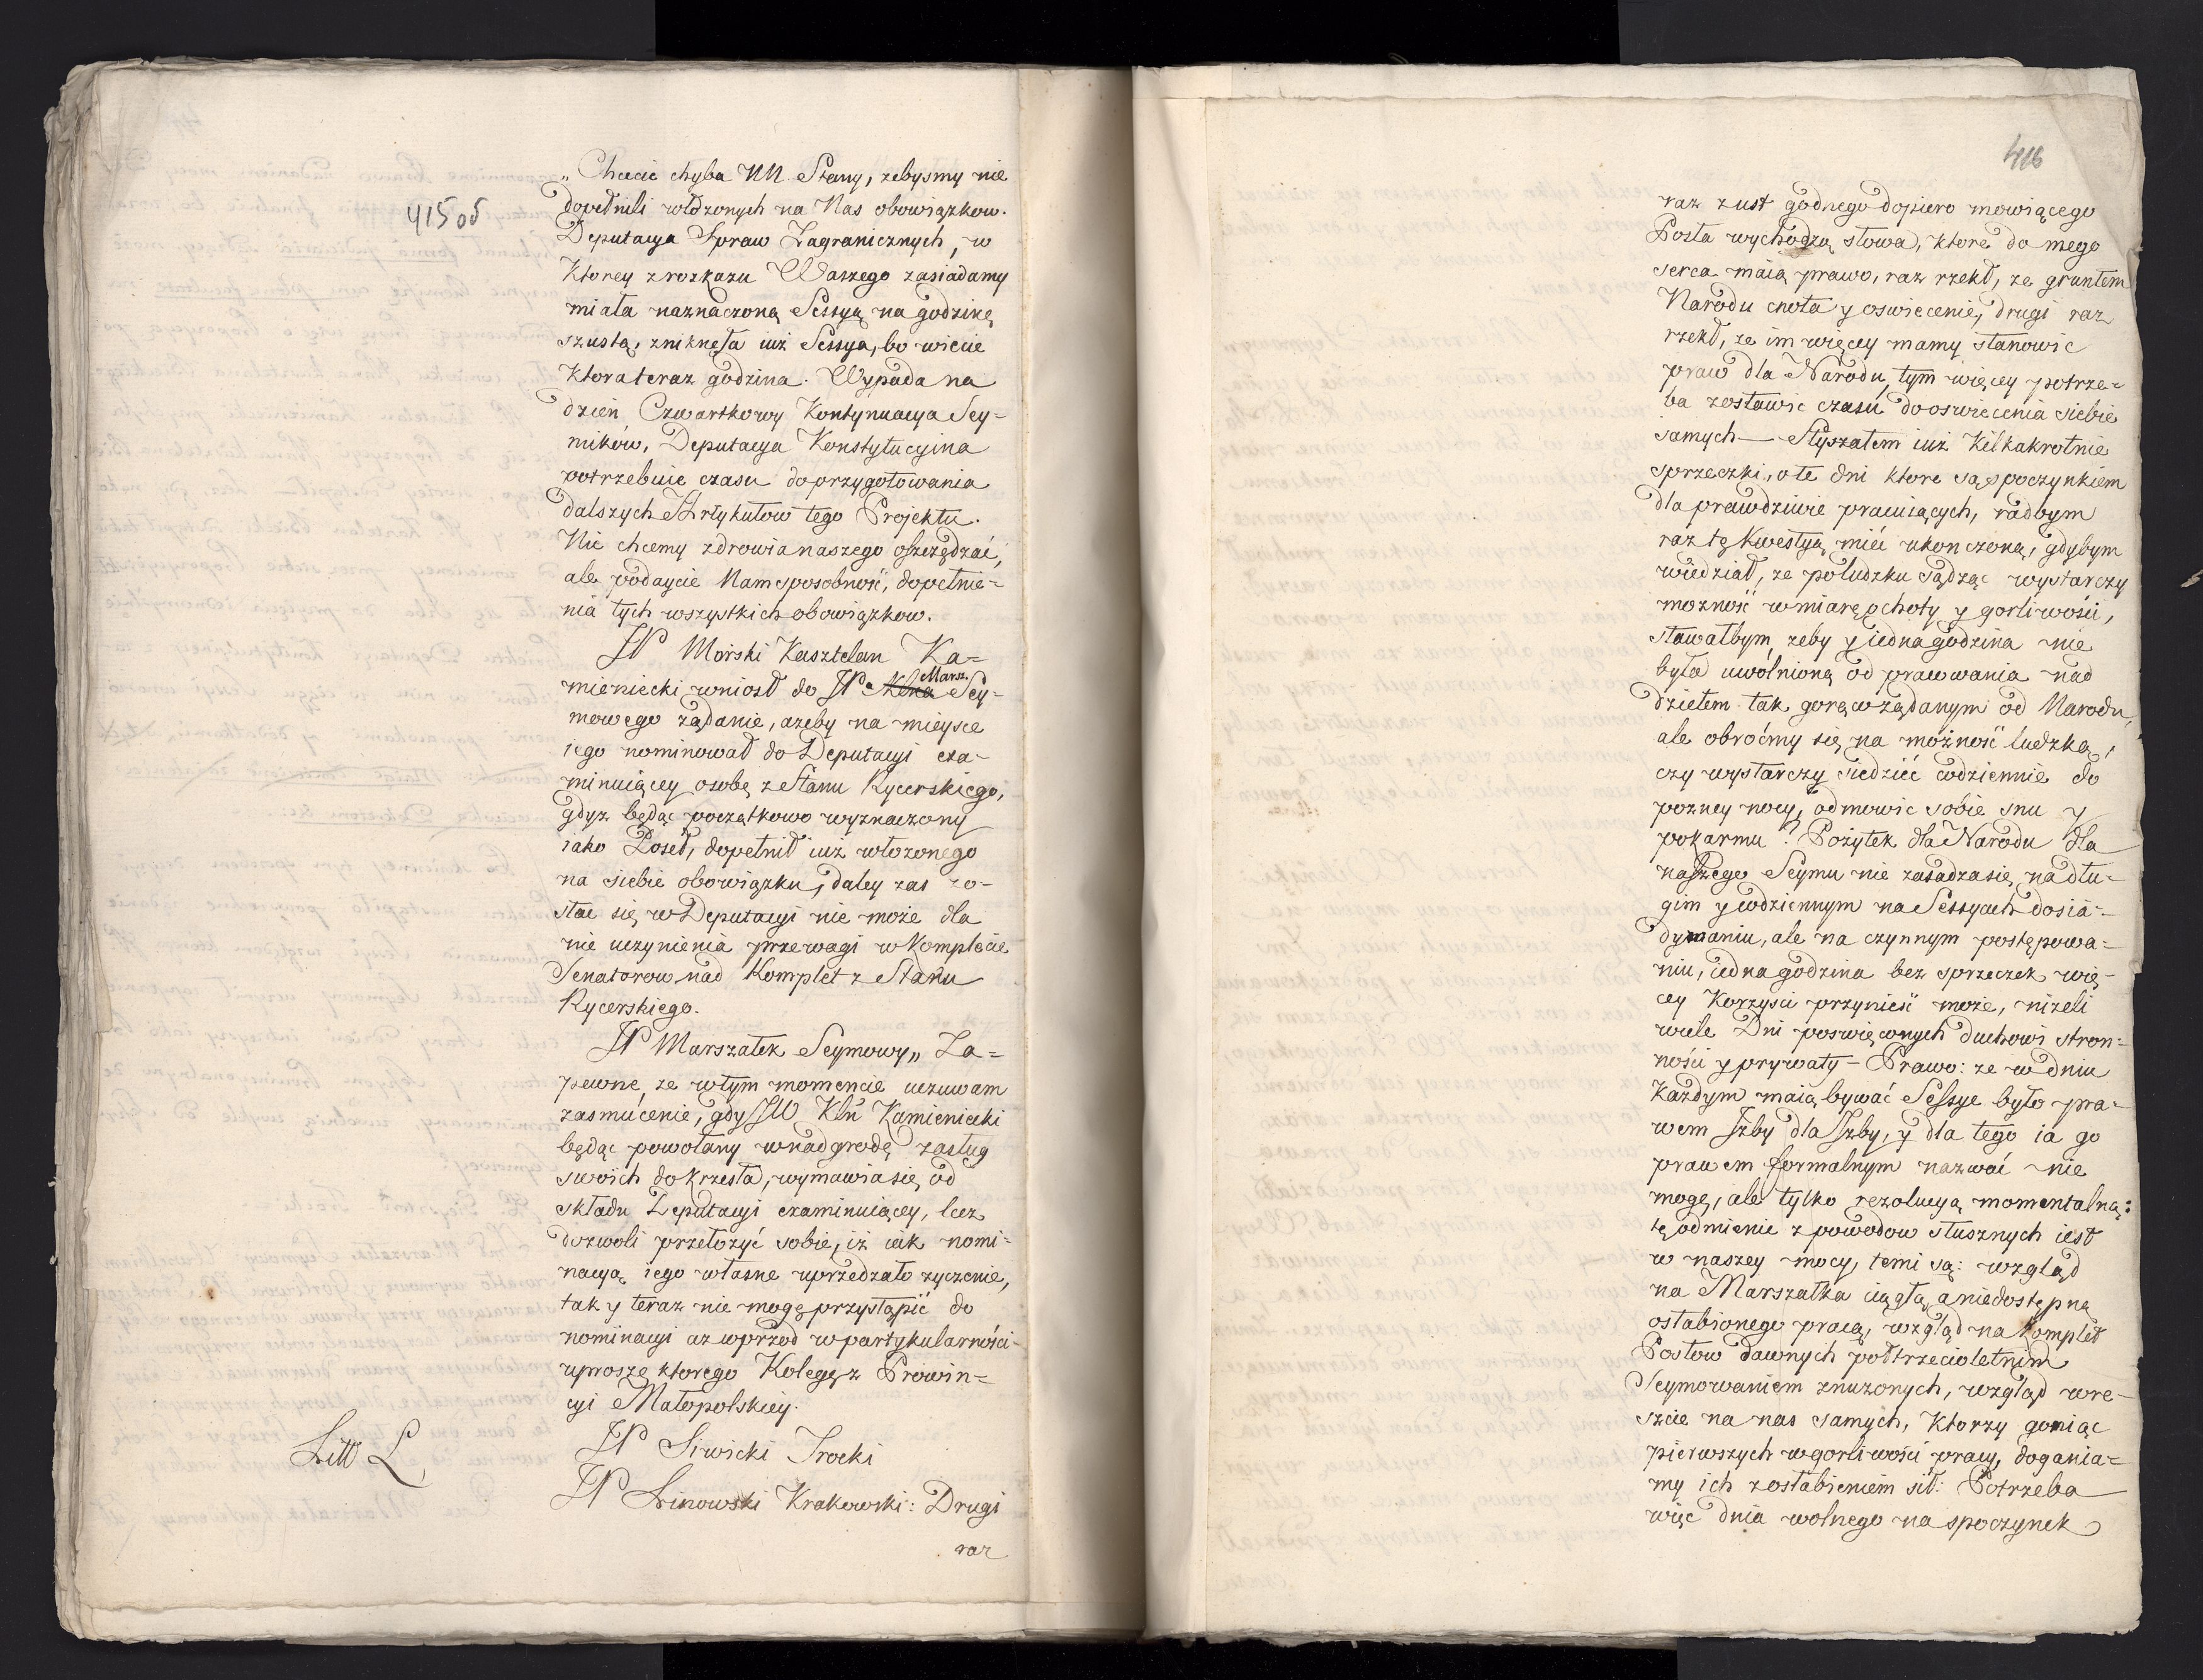 415 od
„Chcecie chyba NN. Stany, zebysmy nie
dopełnili włozonych na Nas obowiązkow.
Deputacya Spraw Zagranicznych, w
Ktorey z rozkazu Waszego zasiadamy
miała naznaczoną Sessyą na godzinę
szustą, zniknęła iuż Sessya, bo wiecie
Ktora teraz godzina. Wypada na
dzień Czwartkowy Kontynuacya Sey=
mików, Deputacya Konstytucyina
potrzebuie czasu do przygotowania
dalszych Artykułow tego Projektu.
Nie chcemy zdrowia naszego oszczędzać,
ale podaycie Nam sposobność, dopełnie=
nia tych wszystkich obowiązkow.
JP Morski Kasztelan Ka=
mieniecki wniosł do JP Marsz. Sey=
mowego żądanie, azeby na mieysce
iego nominował do Deputacyi exa=
minuiącey osobę z Stanu Rycerskiego,
gdyz będąc początkowo wyznaczony
iako Poseł, dopełnił iuż włozonego
na siebie obowiązku, daley zas zo=
stac się w Deputacyi nie może dla
nie uczynienia przewagi w Komplecie
Senatorow nad Komplet z Stanu
Rycerskiego.
JP Marszałek Seymowy„ Za=
pewne, ze w tym momencie uczuwam
zasmucenie, gdy JW Kln Kamieniecki
będąc powołany w nadgrodę zasług
swoich do Krzesła, wymawia się od
składu Deputacyi examinuiącey, lecz
dozwoli przełozyć sobie, iż iak nomi=
nacyą iego własne uprzedzało zyczenie,
tak y teraz nie mogę przystąpić do
nominacyi az wprzod w partykularności
uproszę ktorego Kolegę z Prowin=
cyi Małopolskiey.
JP Siwicki Trocki
Litt L.
JP Linowski Krakowski: Drugi
raz
416
raz z ust godnego dopiero mowiącego
Posła wychodzą słowa, ktore do mego
serca maią prawo, raz rzekł, ze gruntem
Narodu cnota y oswiecenie, drugi raz
rzekł, ze im więcey mamy stanowic
praw dla Narodu, tym więcey potrze=
ba zostawic czasu do oswiecenia siebie
samych — Słyszałem iuż Kilkakrotnie
sprzeczki, o te dni ktore są spoczynkiem
dla prawdziwie pracuiących, radbym
raz tę Kwestyą mieć ukonczoną, gdybym
wiedział, ze poludzku sądząc wystarczy
mozność w miarę ochoty y gorliwości,
stawałbym, zeby y iedna godzina nie
była uwolnioną od pracowania nad
dziełem tak gorąco żądanym od Narodu,
ale obroćmy się na możność ludzką,
czy wystarczy siedzieć codziennie do
pozney nocy, odmowic sobie snu y
pokarmu? Pożytek dla Narodu dla
naszego Seymu nie zasadza się na dłu=
gim y codziennym na Sessyach dosia=
dywaniu, ale na czynnym postępowa=
niu, iedna godzina bez sprzeczek wię=
cey Korzysci przynieść może, niżeli
wiele Dni poswięconych duchowi stron=
ności y prywaty — Prawo: ze w dniu
Każdym maią bywać Sessye było pra=
wem Izby dla Izby, y dla tego ia go
prawem formalnym nazwać nie
mogę, ale tylko rezolucyą momentalną:
tę odmienic z powodow słusznych iest
w naszey mocy, temi są: wzgląd
na Marszałka ciągłą a niedostępną
osłabionego pracą, wzgląd na Komplet
Posłow dawnych połtrzecioletnim
Seymowaniem znuzonych, wzgląd wre=
szcie na nas samych, Ktorzy goniąc
pierwszych w gorliwości pracy, dogania=
my ich z osłabieniem sił: Potrzeba
więc dnia wolnego na spoczynek